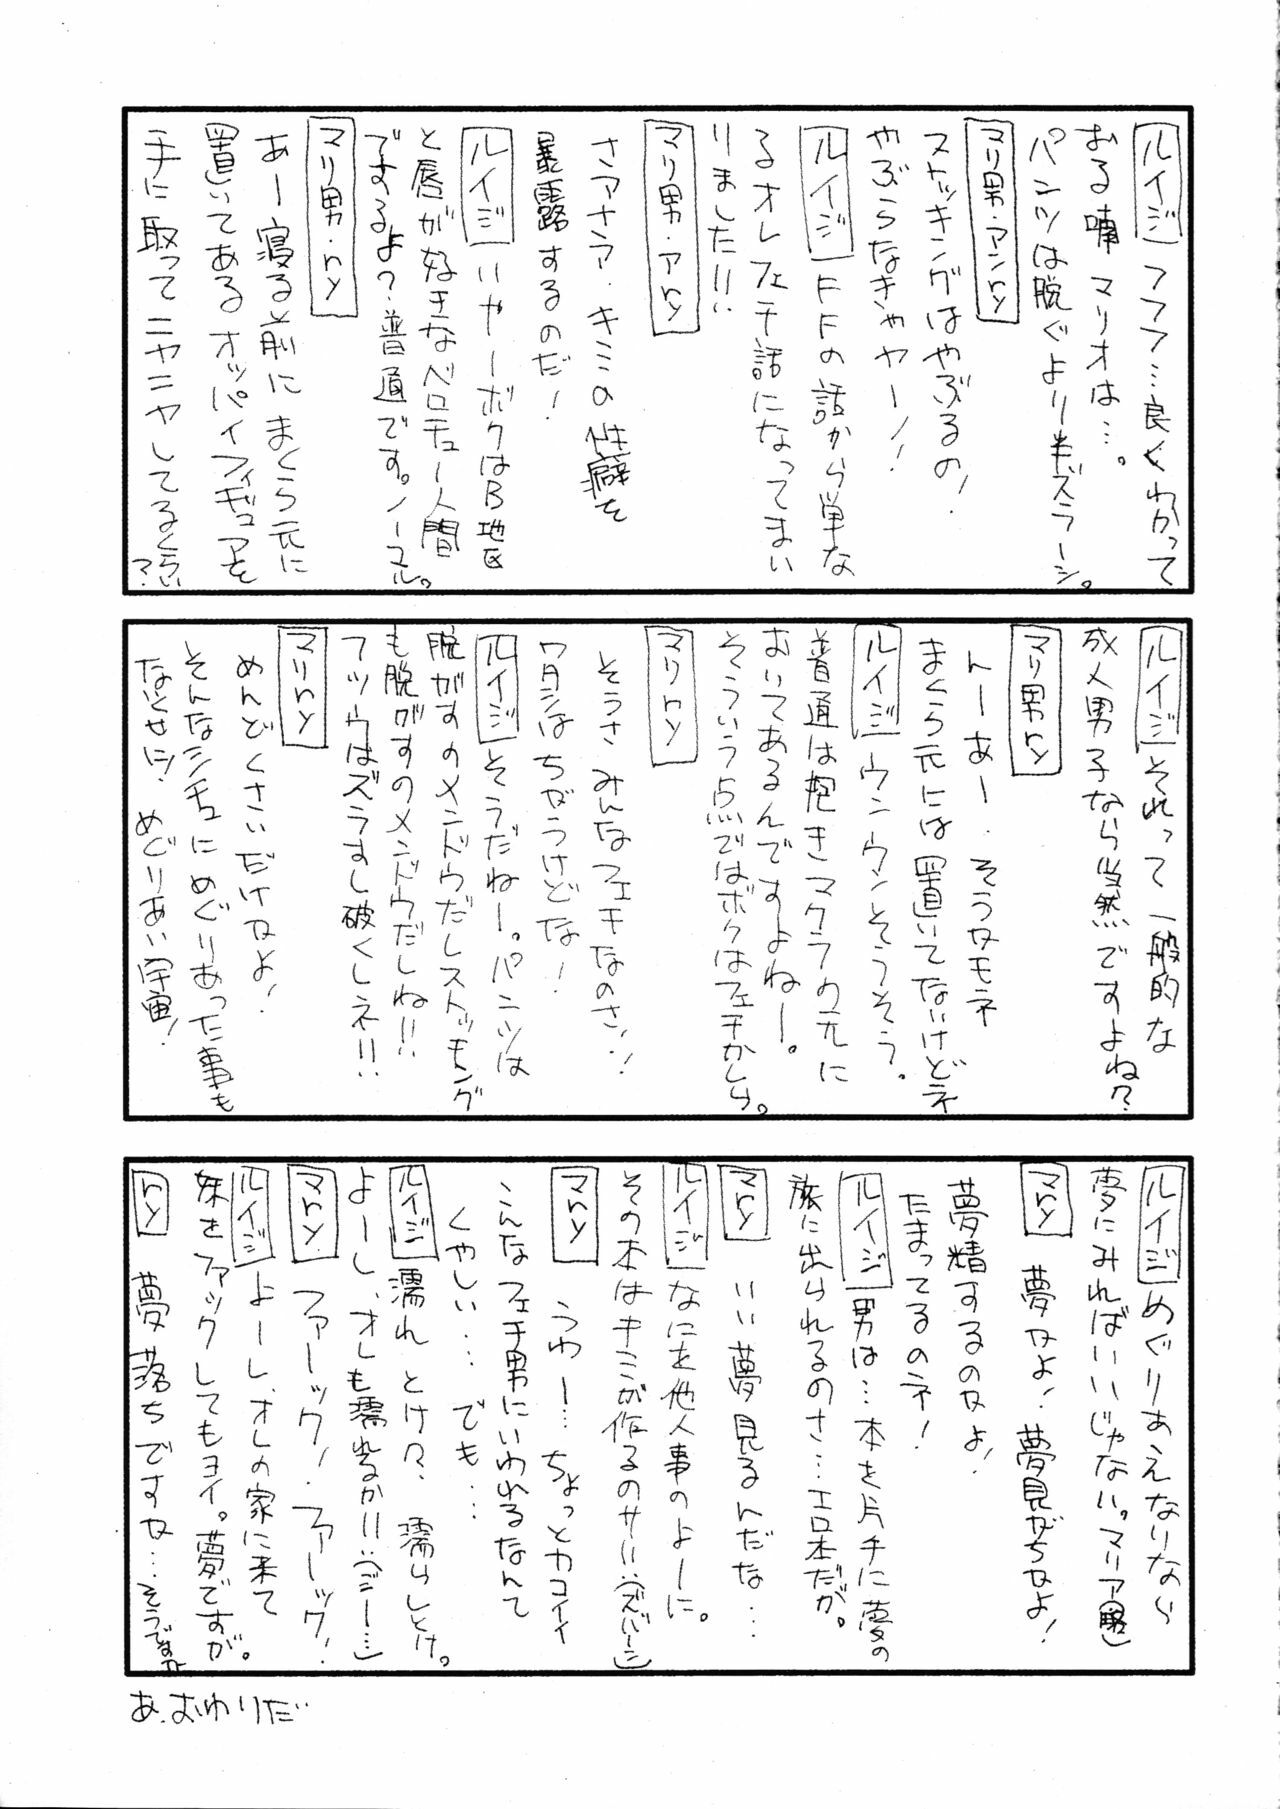 ルイジ フフフ…良くわかって
おる喃 マリオは…。
パンツは脱ぐより半ズラーシ。
マリ男・アンry
ストッキングはやぶるの!
やぶらなきゃヤー!!
ルイジ FFの話から単な
るオレフェチ話になってまい
りました!!
マリ男・アry
さアさア・キミの性癖を
暴露するのだ!
ルイジ いやーボクはB地区
と唇が好きなベロチュー人間
ですよ?普通です。ノーマル。
マリ男・ry
あー寝る前にまくら元に
置いてあるオッパイフィギュアを
手に取ってニヤニヤしてるくらい?
ルイジ それって一般的な
成人男子なら当然ですよね?
マリ男ry
んーあー、そうかモネ
まくら元には置いてないけどネ
ルイジ ウンウンそうそう。
普通は抱きマクラの元に
おいてあるんですよねー。
そういう点ではボクはフェチかしら。
マリry
そうさみんなフェチなのさ!!
ワタシはちがうけどな!
ルイジ そうだねー。パンツは
脱がすのメンドウだしストッキング
も脱がすのメンドウだしね!!
フツウはズラすし破くしネ!!
マリry
めんどくさいだけかよ!
そんなシチュにめぐりあった事も
ないくせに! めぐりあい宇宙!
ルイジ めぐりあえないなら
夢にみればいいじゃない。マリア(略)
マry 夢かよ!夢見がちかよ!
夢精するのかよ!
たまってるのネ!
ルイジ 男は…本を片手に夢の
旅に出られるのさ…エロ本だが。
マry いい夢見るんだな…
ルイジ なにを他人事のよーに。
その本はキミが作るのサ!!(ズバーン)
マry うわー…ちょっとカコイイ
こんなフェチ男にいわれるなんて
くやしい…でも…
ルイジ 濡れとけ々、濡らしとけ。
よーし、オレも濡れるか!!(ジー…)
マry ファーック!ファーック!
ルイジ よーし、オレの家に来て
妹をファックしてもヨイ。夢ですが。
ry 夢落ちですか…そうですか
あ、おわりだ